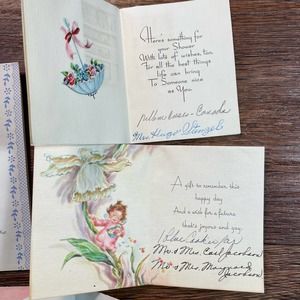 Here's something for
your Shower
With lots of wishes, too,
For all the best things
life can bring
To Someone nice
as You.
Canada
Mrs. Hugo
A gift to remember this
happy day
And a wish for a future
that's joyous and gay.
Mr. & Mrs. Carl Jacobson
Mr. & Mrs. Maynard
Jacobson